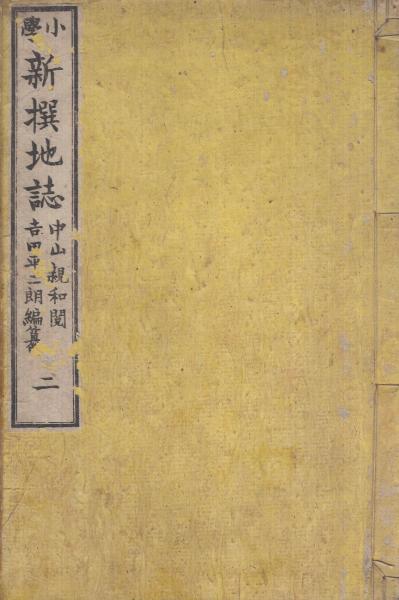 小學
新撰地誌
中山親和閲
吉田平二朗編纂
二